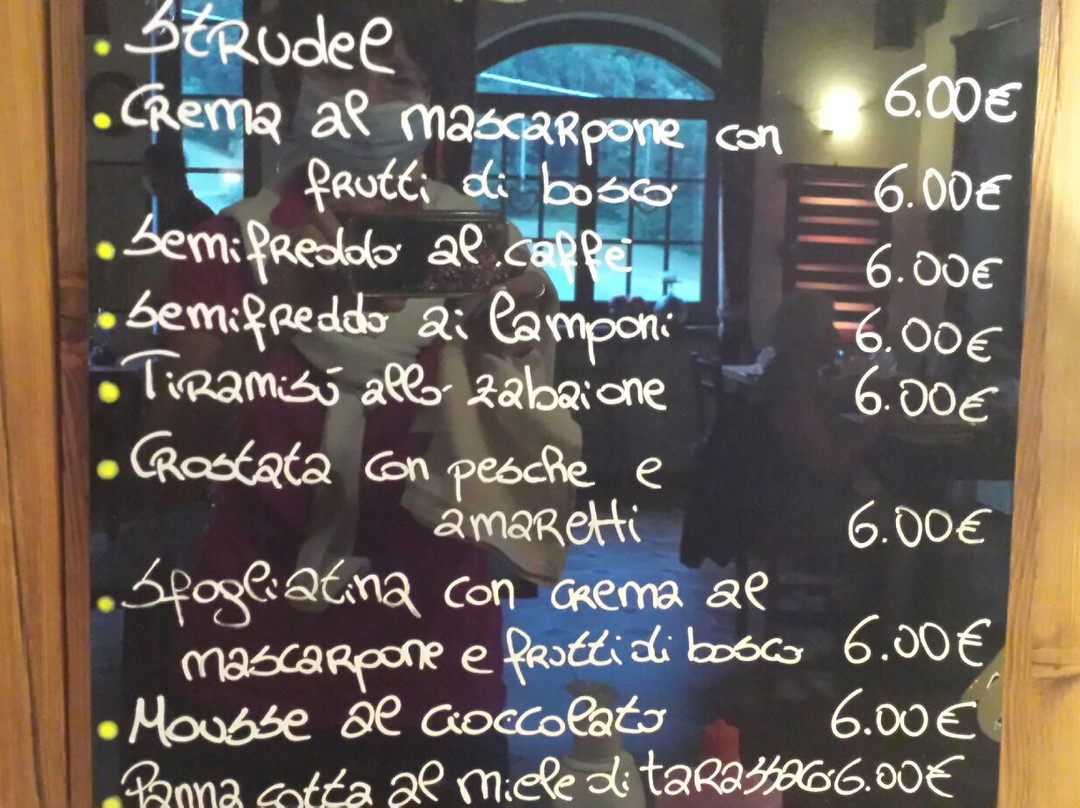 Strudel 6.00€
Crema al mascarpone con
frutti di bosco 6.00€
Semifreddo al caffè 6.00€
Semifreddo ai lamponi 6.00€
Tiramisù allo zabaione 6.00€
Crostata con pesche e
amaretti 6.00€
Sfogliatina con crema al
mascarpone e frutti di bosco 6.00€
Mousse al cioccolato 6.00€
Panna cotta al miele di tarassaco 6.00€